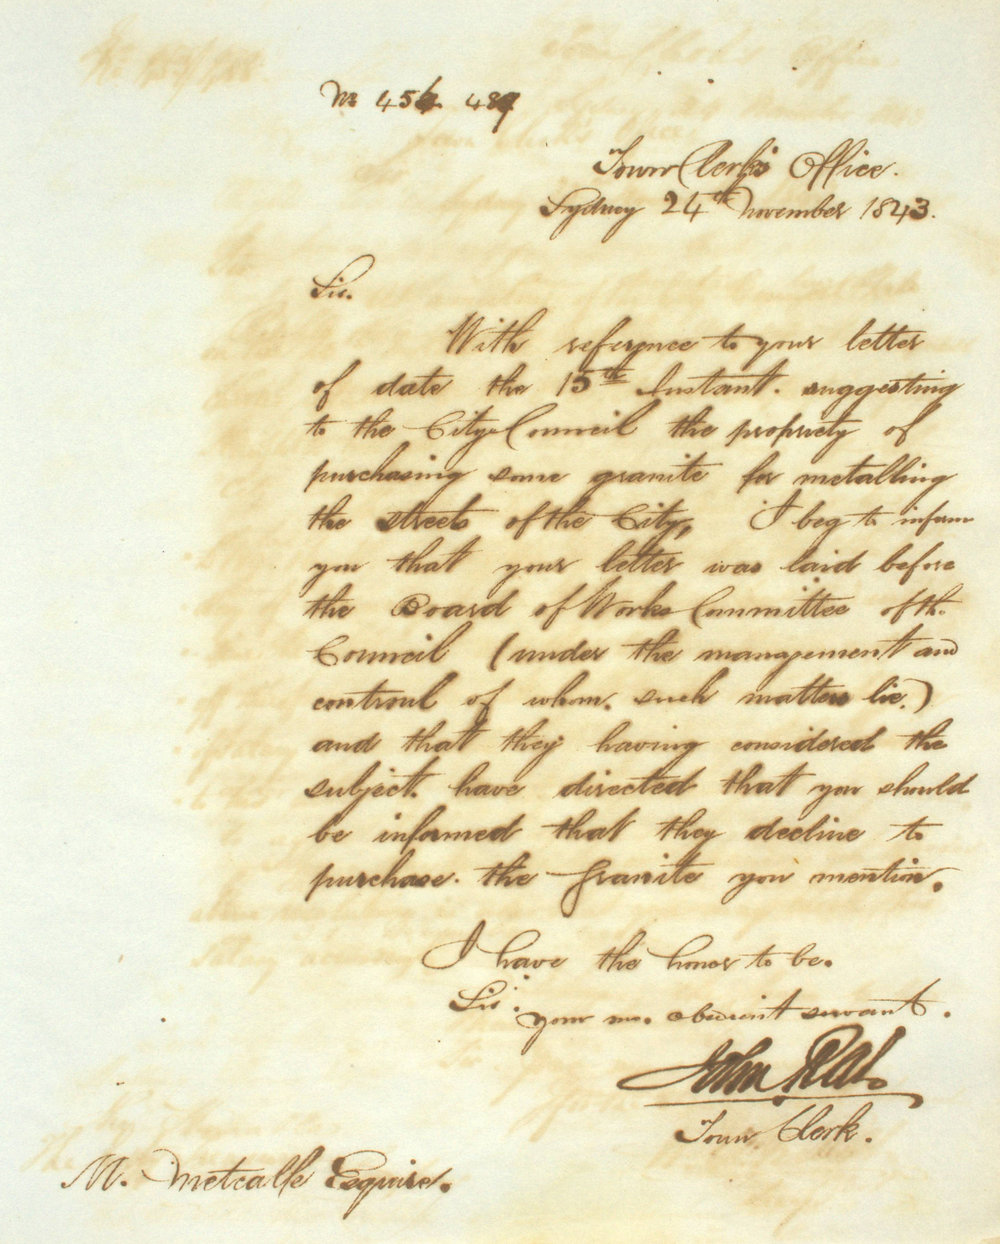 No 454 487
Town Clerk's Office.
Sydney 24th November 1843.
Sir.
With reference to your letter
of date the 15th Instant. suggesting
to the City Council the propriety of
purchasing some granite for metalling
the streets of the City, I beg to inform
you that your letter was laid before
the Board of Works Committee of the
Council (under the management and
controul of whom. such matters lie.)
and that they having considered the
subject. have directed that you should
be informed that they decline to
purchase. the Granite you mention.
I have the honor to be.
Sir.
your mo. obedient servant.
John Rae
Town Clerk.
M. Metcalfe Esquire.